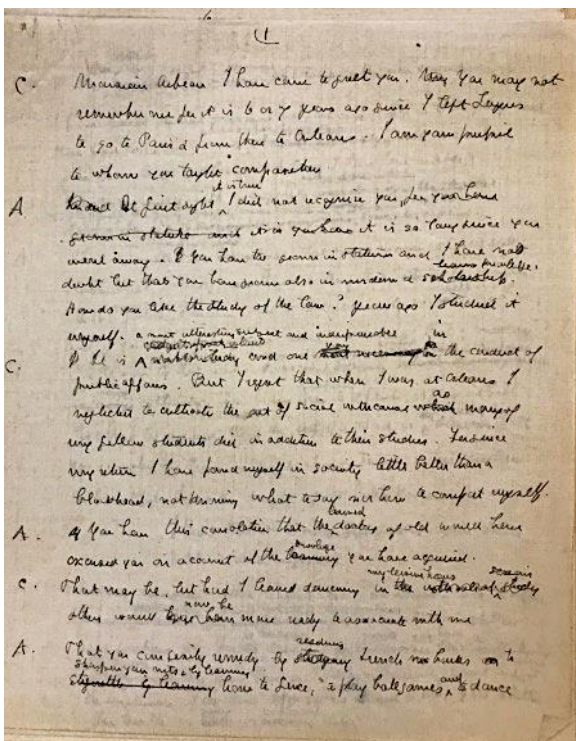 1
C. Monsieur Arbeau I have come to greet you. You may not
remember me for it is 6 or 7 years ago since I left Langres
to go to Paris & from there to Orleans. I am your pupil
to whom you taught computation
it is true
A At first sight I did not recognise you, for you have
grown in stature and it is so long since you
went away. You have grown in stature and I have no
learning knowledge.
doubt but that you have grown also in wisdom & scholarship.
How do you like the study of the law? years ago I studied it
myself. a most interesting subject and indispensable in
C. It is study and one most necessary the conduct of
public affairs. But I regret that when I was at Orleans I
as
neglected to cultivate the art of social intercourse which many of
my fellow students did in addition to their studies. For since
my return I have found myself in society little better than a
blockhead, not knowing what to say nor how to comport myself.
learned
A. You have this consolation that the doctors of old would have
knowledge
excused you on account of the learning you have acquired.
my leisure hours
C. That may be, but had I learned dancing in the intervals of study
now be
others would have been more ready to associate with me
reading
A. That you can easily remedy by studying French books to
sharpen your wits & by learning
etiquette by learning how to fence, to play ball games and to dance